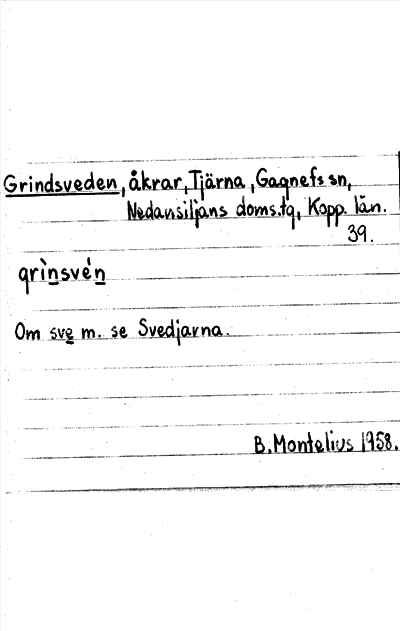 Grindsveden, åkrar, Tjärna, Gagnefs sn,
Nedansiljans doms.tg, Kopp. län.
39.
grìnsvén
Om sve m. se Svedjarna.
B. Montelius 1958.